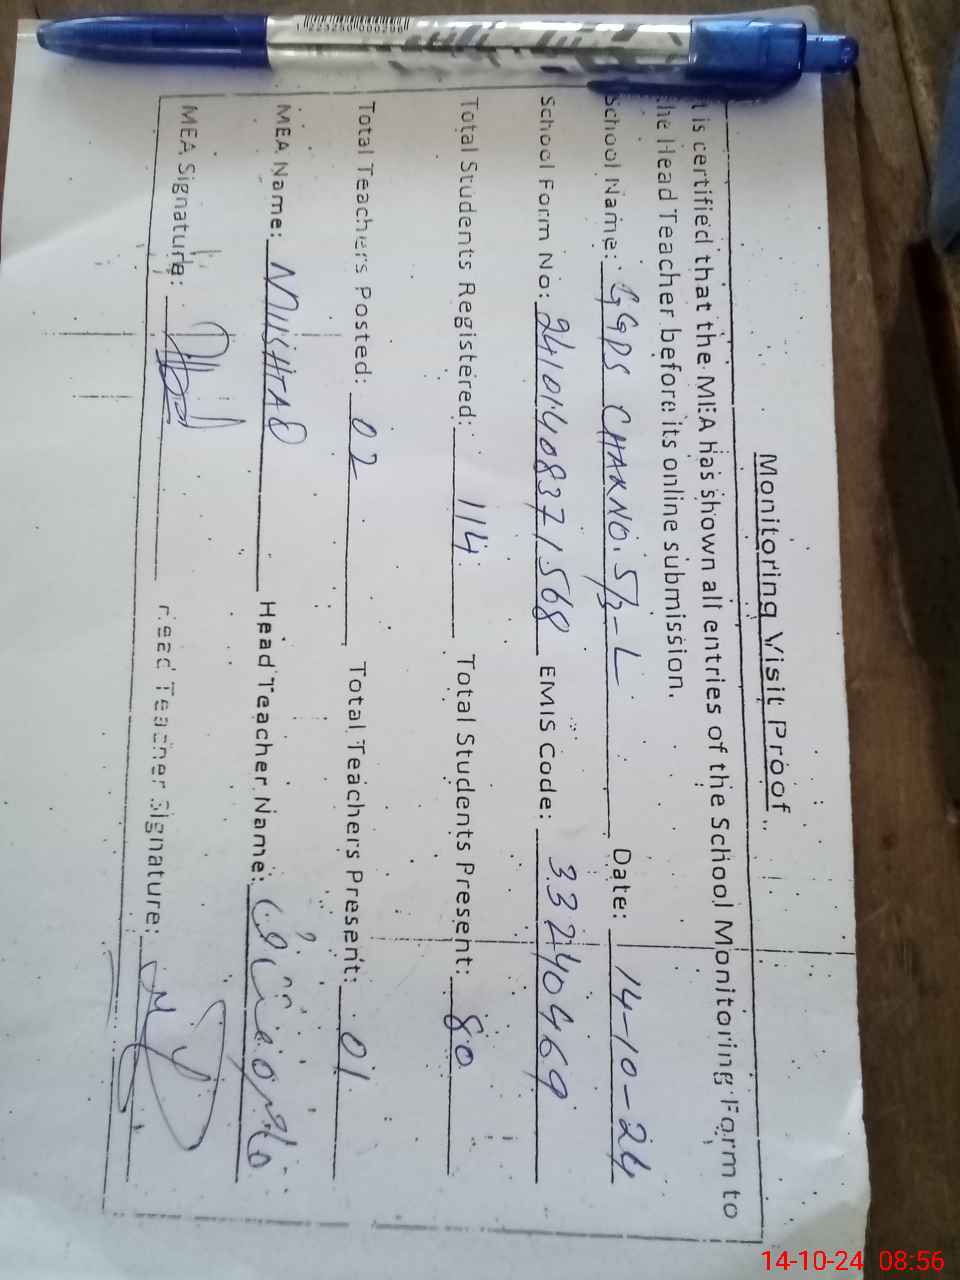 Monitoring Visit Proof
It is certified that the MEA has shown all entries of the School Monitoring Form to
the Head Teacher before its online submission.
School Name: GGPS CHAK NO. 5/3-L Date: 14-10-24
School Form No: 24101408371568 EMIS Code: 33240469
Total Students Registered: 114 Total Students Present: 80
Total Teachers Posted: 02 Total Teachers Present: 01
MEA Name: MUKHTAR Head Teacher Name:
MEA Signature: Head Teacher Signature:
14-10-24 08:56